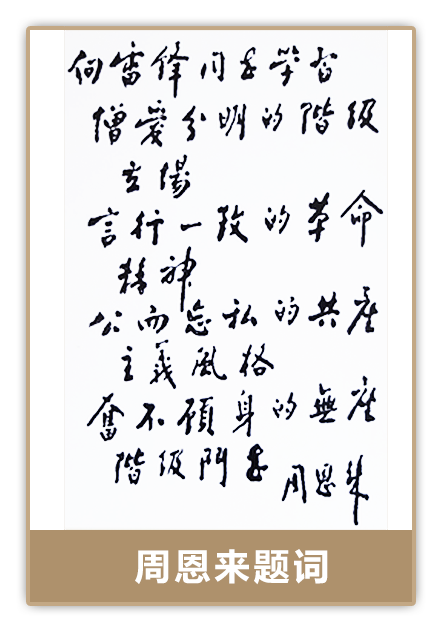 向雷鋒同志学習
憎愛分明的階級
立場
言行一致的革命
精神
公而忘私的共產
主義風格
奮不顧身的無產
階級鬥志 周恩来
周恩来题词